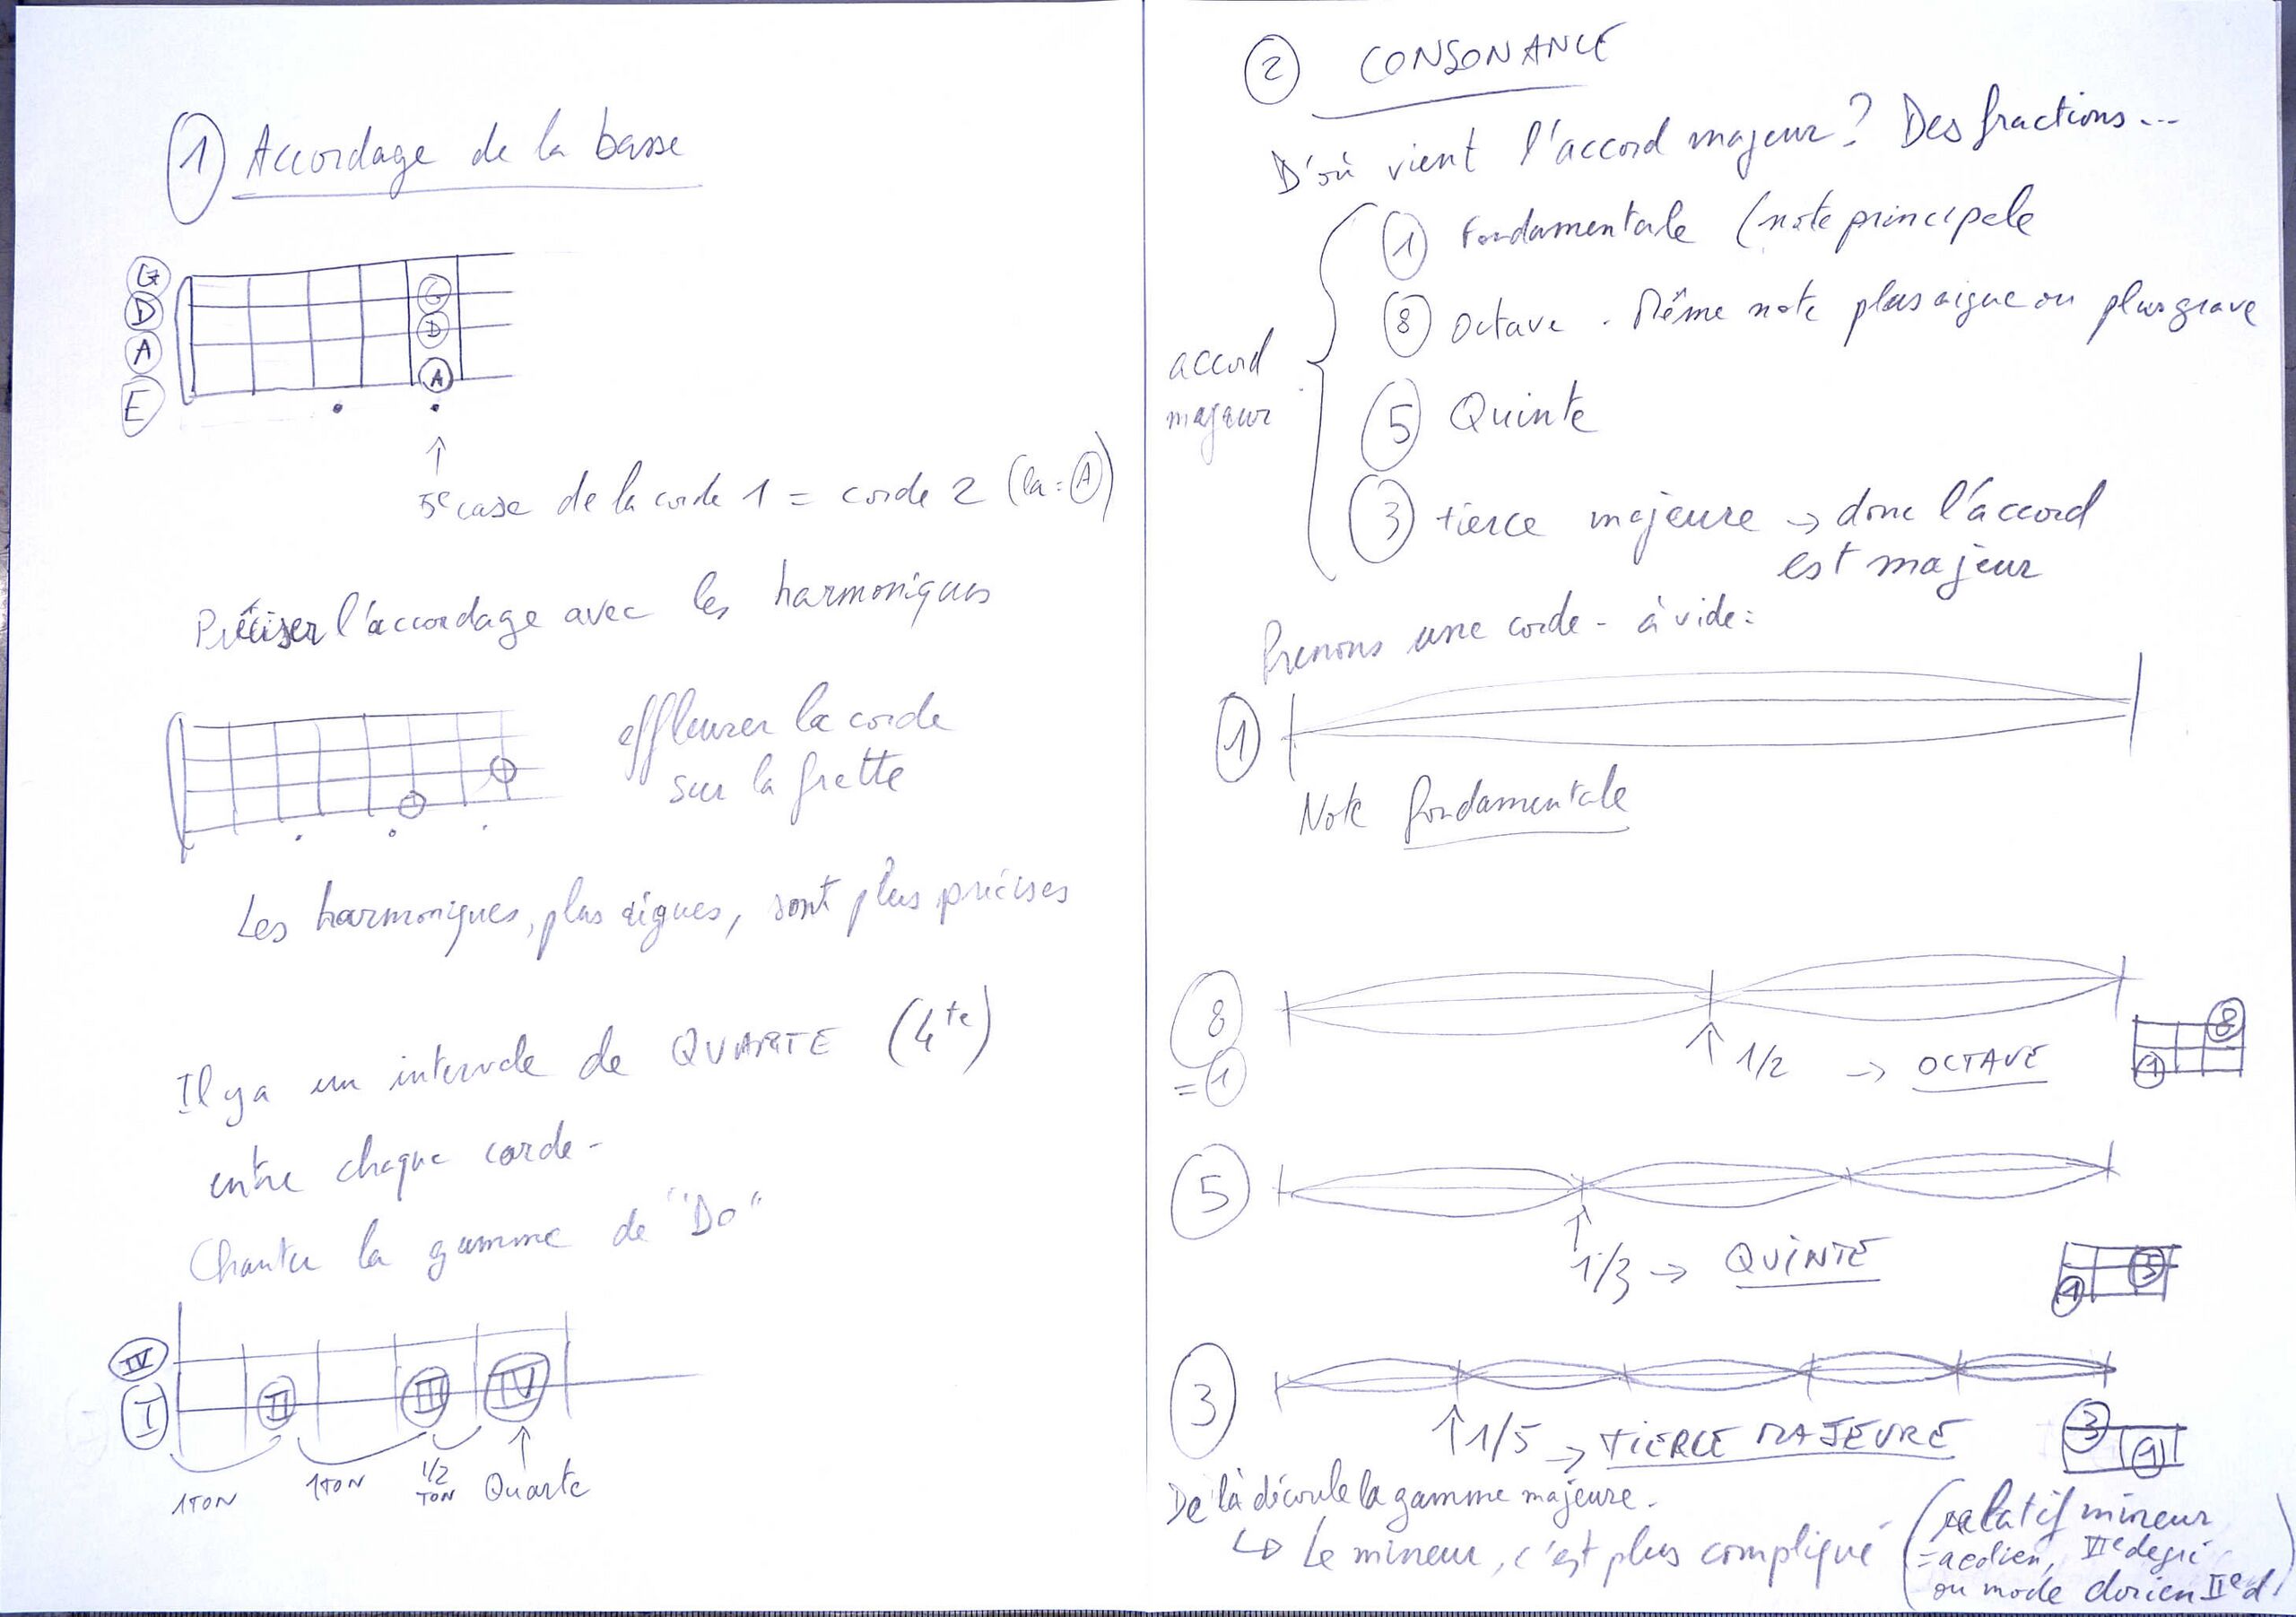 ① Accordage de la basse
G
D
A
E
G
D
A
↑
5e case de la corde 1 = corde 2 (la = Ⓐ)
Préciser l'accordage avec les harmoniques
effleurer la corde
sur la frette
Les harmoniques, plus aigues, sont plus précises
Il y a un intervale de QUARTE (4te)
entre chaque corde -
Chanter la gamme de "Do"
IV
I
II
III
IV
1 TON
1 TON
1/2 TON
↑ Quarte
② CONSONANCE
D'où vient l'accord majeur ? Des fractions...
accord majeur
① Fondamentale (note principale
⑧ Octave . Même note plus aigue ou plus grave
⑤ Quinte
③ tierce majeure → donc l'accord
est majeur
Prenons une corde - à vide :
①
Note fondamentale
⑧
= ①
↑ 1/2 → OCTAVE
8
1
⑤
↑ 1/3 → QUINTE
5
1
③
↑ 1/5 → TIERCE MAJEURE
3
1
De là découle la gamme majeure.
↳ Le mineur, c'est plus compliqué
(relatif mineur
= aeolien, VIe degré
ou mode dorien IIe d.)